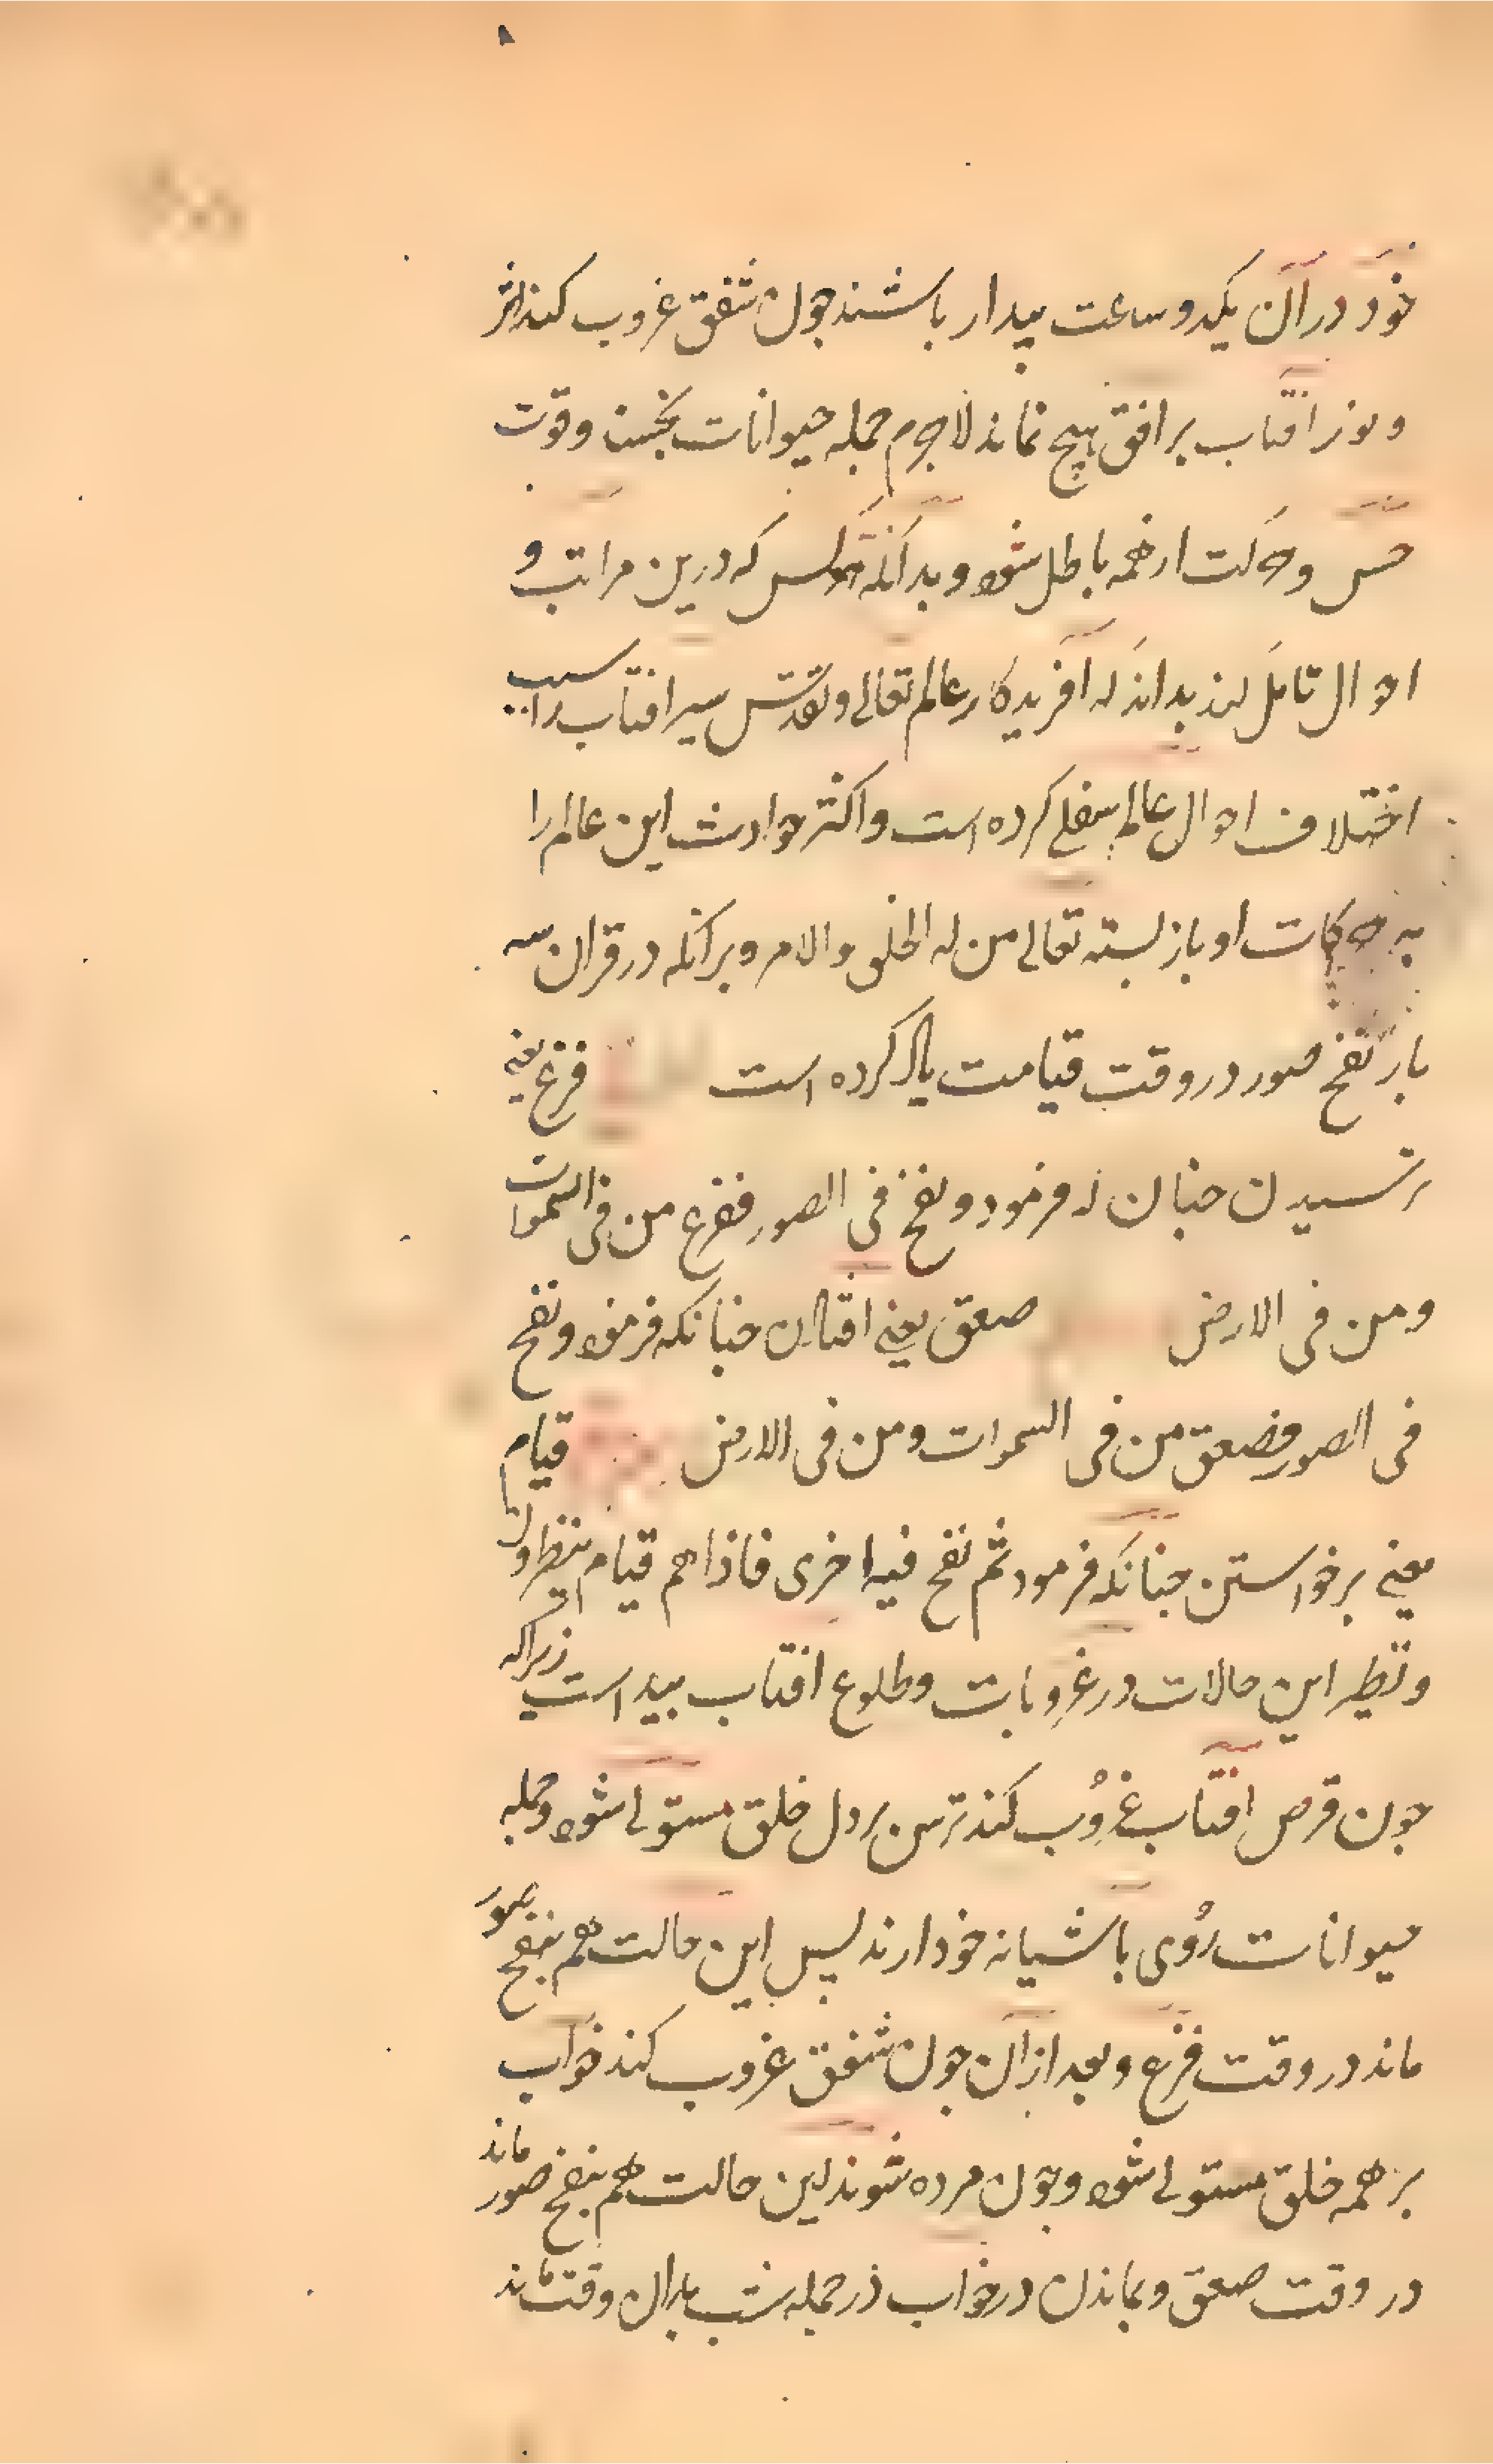 خود در آن یکدو ساعت بیدار باشند جون شفق غروب کند اثر
و نور افتاب بر افق هیچ نماند لاجرم جمله حیوانات بخسبند و قوت
حس و حرکت از همه باطل شود و بدانکه هر کس که درین مراتب و
احوال تامل کند بداند که آفریدکار عالم تعالی و تقدس سیر افتاب را سبب
اختلاف احوال عالم سفلی کرده است و اکثر حوادث این عالم را
به حرکات او باز بسته تعالی من له الخلق والامر و بر آنکه در قران سه
بار نفخ صور در وقت قیامت یاد کرده است فزع یعنی
ترسیدن جنان که فرمود و نفخ فی الصور ففزع من فی السموات
ومن فی الارض صعق یعنی افتادن جنانکه فرمود و نفخ
فی الصور فصعق من فی السموات ومن فی الارض قیام
یعنی برخواستن جنانکه فرمود ثم نفخ فیه اخری فاذا هم قیام ینظرون
و نظیر این حالات در غروبات و طلوع افتاب بیداست زیراکه
جون قرص افتاب غروب کند ترس بر دل خلق مستولی شود و جمله
حیوانات روی باشیانه خود ارند پس این حالت هم بنفخ صور
ماند در وقت فزع و بعد از آن جون شفق غروب کند خواب
بر همه خلق مستولی شود و جون مرده شوند این حالت هم بنفخ صور ماند
در وقت صعق و بماندن در خواب در جمله شب بدان وقت ماند